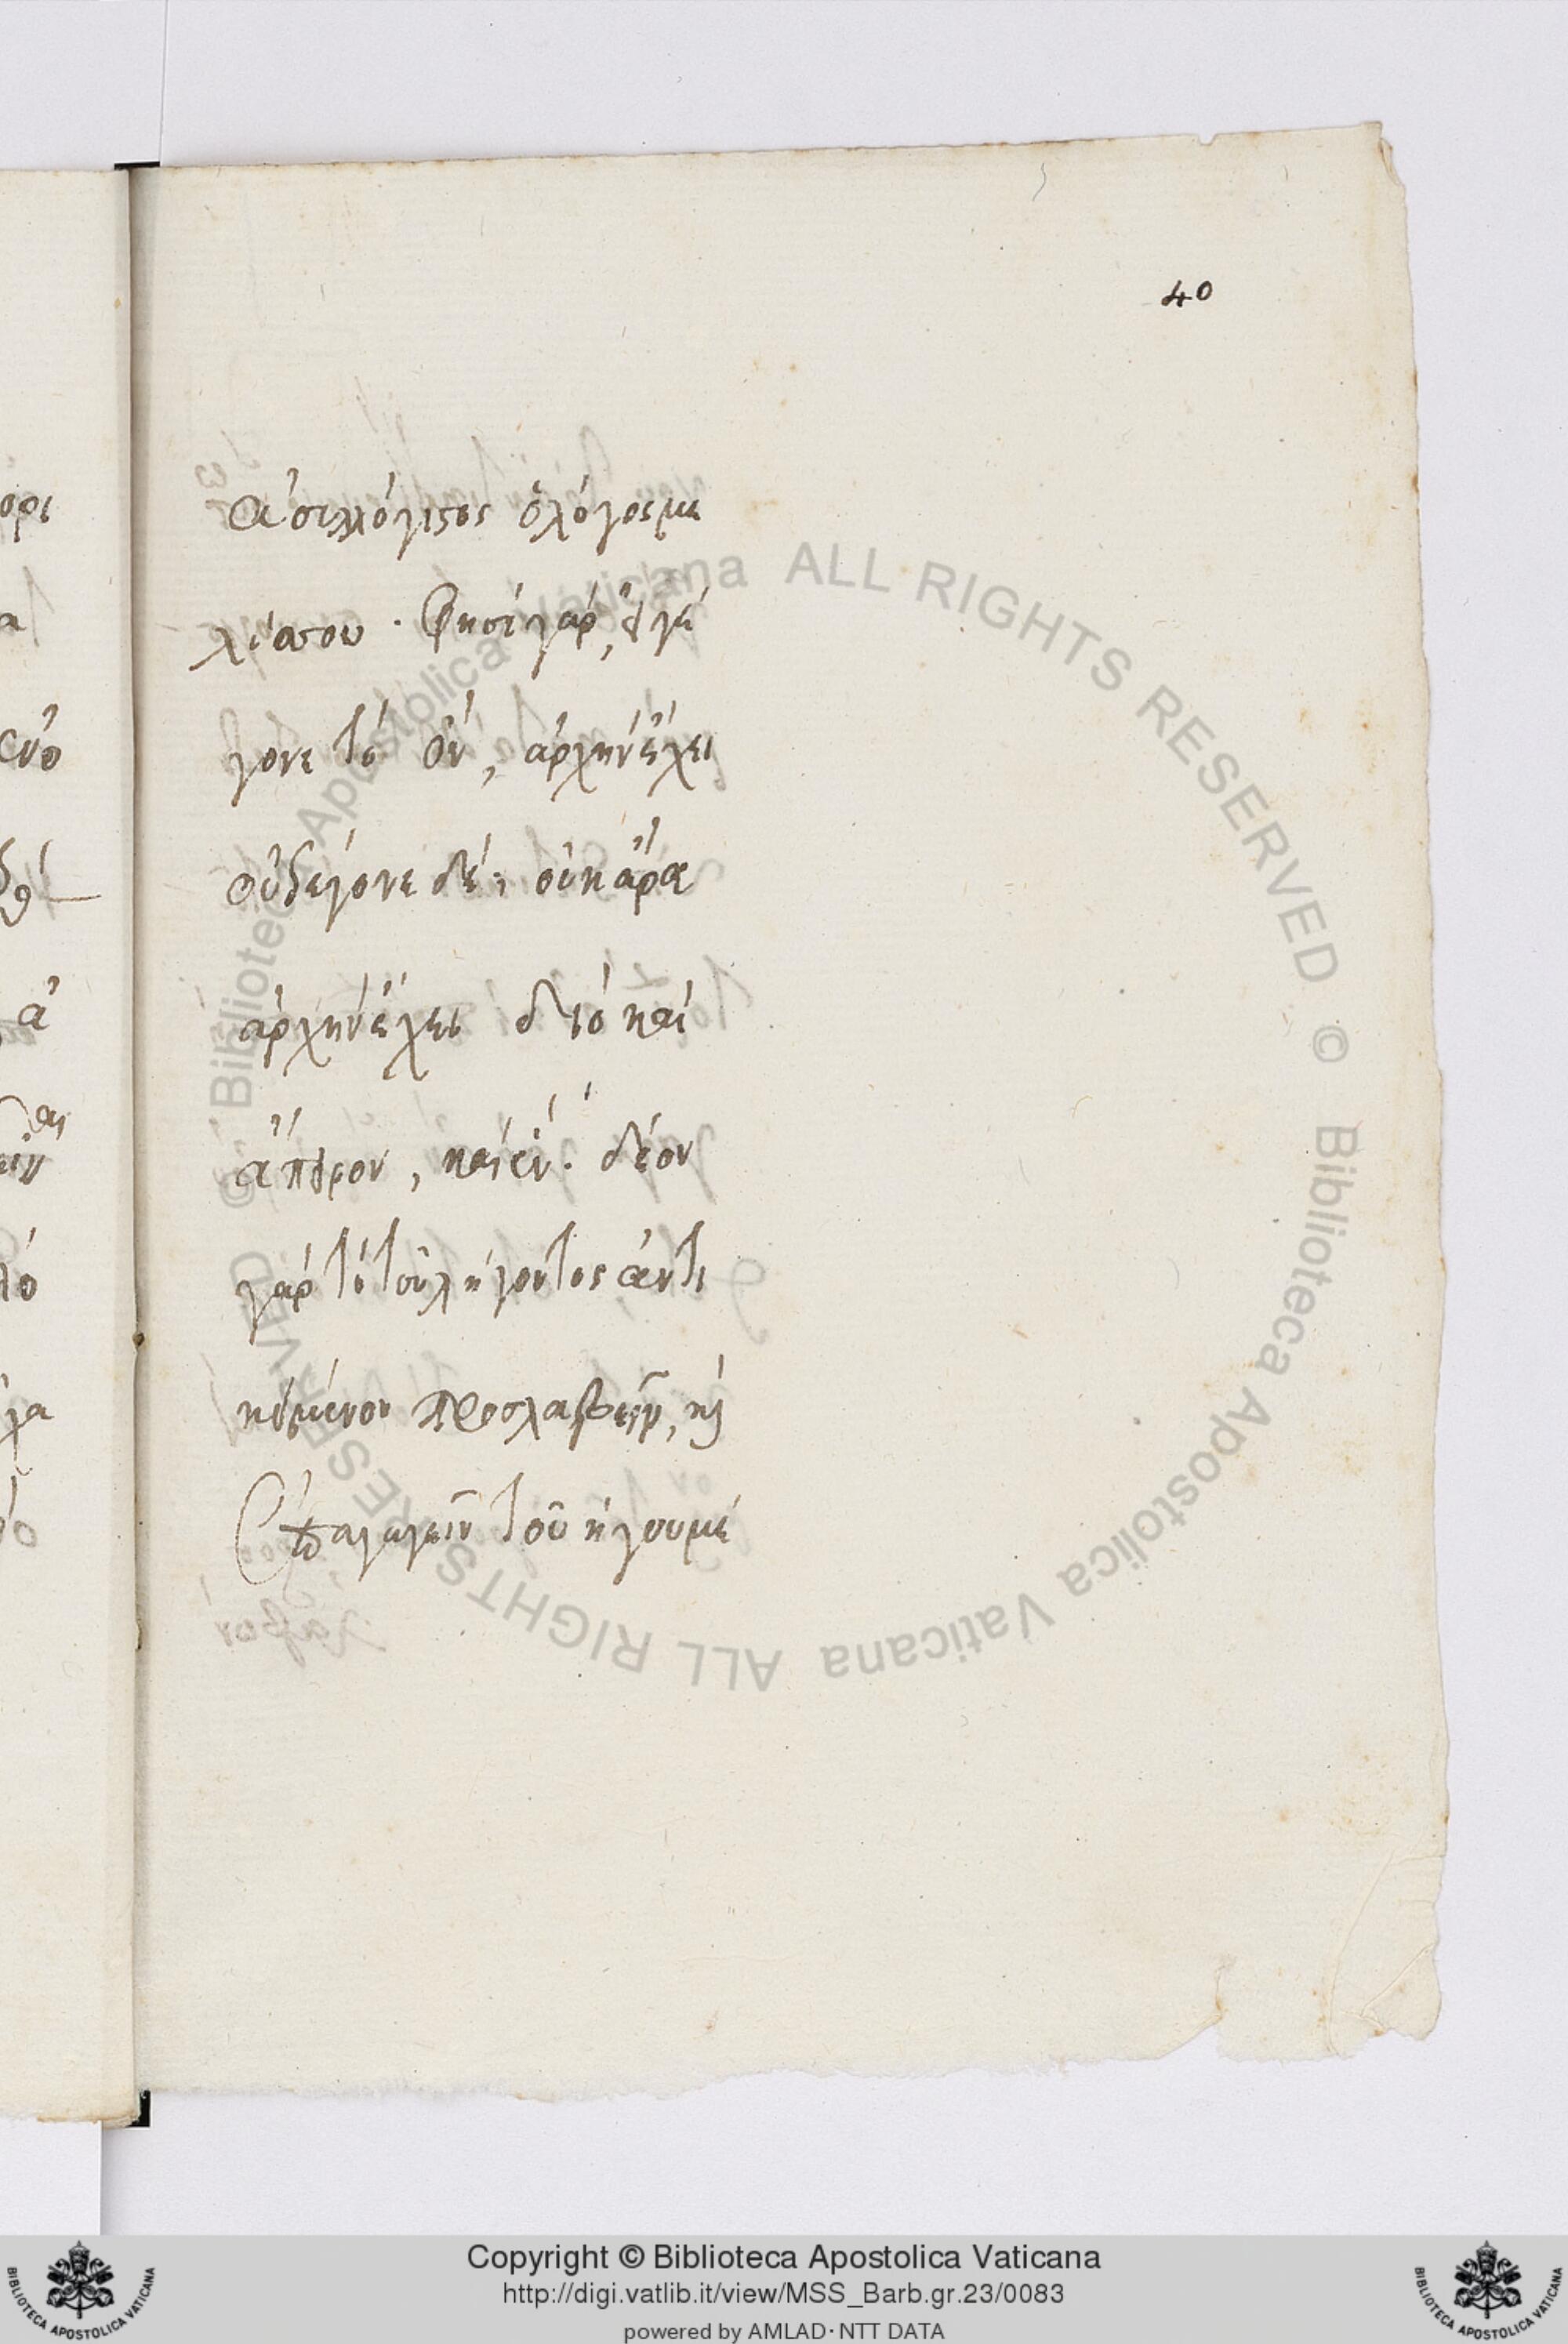 40
ἀσυλλόγιστος ὁ λόγος με
λίσσου · Φησὶ γὰρ, εἰ γέ
γονε τὸ ὄν, ἀρχὴν ἔχει
οὐ γέγονε δέ· οὐκ ἄρα
ἀρχὴν ἔχει διὸ καὶ
ἄπειρον, καὶ ἕν. δέον
γὰρ τὸ τοῦ λήγοντος ἀντι
κείμενον προσλαβεῖν, καὶ
ἐπαγαγεῖν τοῦ ἡγουμέ
ορι
α
ἀ
λο
γα
Copyright © Biblioteca Apostolica Vaticana
http://digi.vatlib.it/view/MSS_Barb.gr.23/0083
powered by AMLAD·NTT DATA
© Biblioteca Apostolica Vaticana ALL RIGHTS RESERVED © Biblioteca Apostolica Vaticana ALL RIGHTS RESERVED
BIBLIOTECA APOSTOLICA VATICANA
BIBLIOTECA APOSTOLICA VATICANA